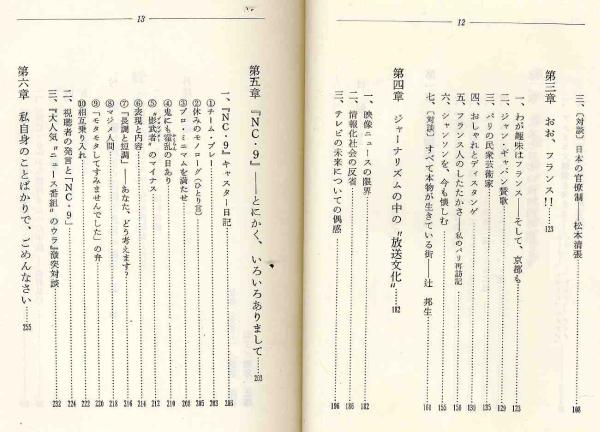 12
三、〔対談〕日本の官僚制――松本清張……108
第三章 おお、フランス!!……123
一、わが趣味はフランス――そして、京都も……123
二、ジャン・ギャバン賛歌……129
三、パリの民衆芸術家……131
四、おしゃれとディスタンゲ……135
五、フランス人のしたたかさ――私のパリ再訪記……150
六、シャンソンを、今も懐しむ……155
七、〔対談〕すべて本物が生きている街――辻 邦生……161
第四章 ジャーナリズムの中の〝放送文化〟……182
一、映像ニュースの限界……182
二、情報化社会の反省……186
三、テレビの未来についての偶感……196
13
第五章 『NC・9』――とにかく、いろいろありまして……203
一、『NC・9』キャスター日記……203
①チーム・プレー……203
②休みのモノローグ(ひとり言)……205
③プロ・ミニマムを満たせ……208
④鬼にも霍乱の日あり……210
⑤〝影武者〟のマイナス……212
⑥表現と内容……214
⑦「長調と短調」――あなた、どう考えます?……216
⑧マジメ人間……218
⑨「モタモタしてすみませんでした」の弁……220
⑩相互乗り入れ……222
二、視聴者の発言と「NC・9」……224
三、『大人気〝ニュース番組〟のウラ』激突対談……232
第六章 私自身のことばかりで、ごめんなさい……255